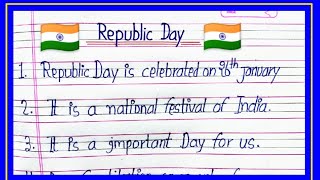 Republic Day
1. Republic Day is celebrated on 26th january
2. It is a national festival of India.
3. It is a important Day for us.